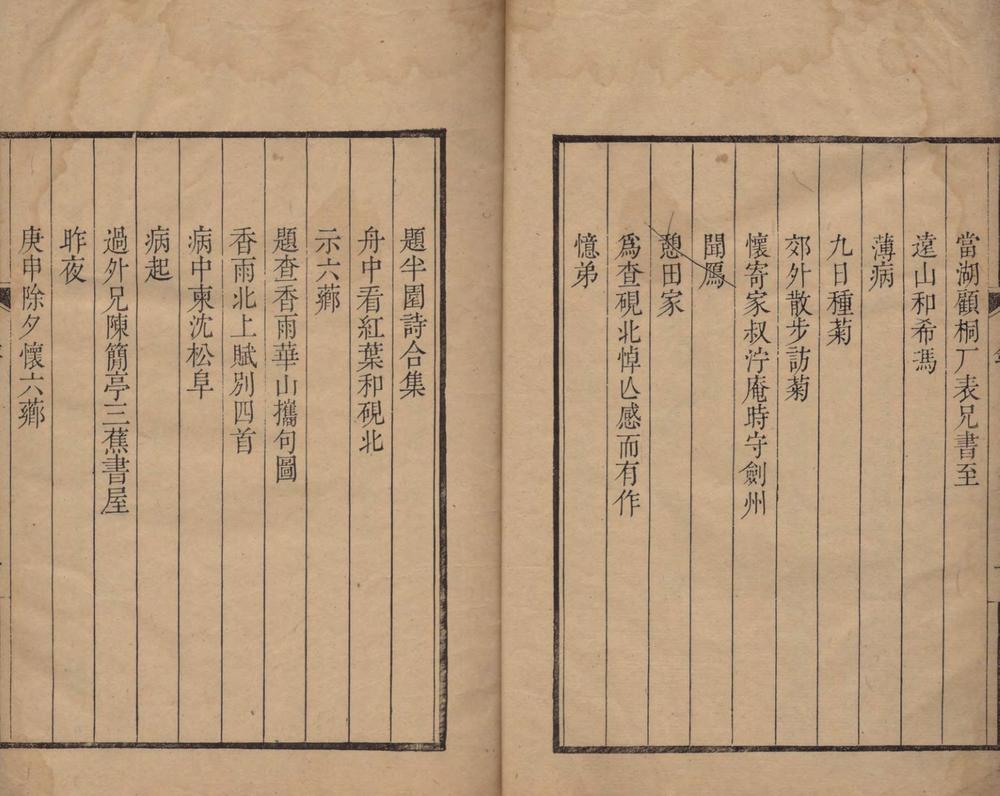 當湖顧桐厂表兄書至
遠山和希馮
薄病
九日種菊
郊外散步訪菊
懷寄家叔泞庵時守劍州
聞鴈
憩田家
爲查硯北悼亾感而有作
憶弟
題半圃詩合集
舟中看紅葉和硯北
示六薌
題查香雨華山攜句圖
香雨北上賦別四首
病中柬沈松阜
病起
過外兄陳簡亭三蕉書屋
昨夜
庚申除夕懷六薌